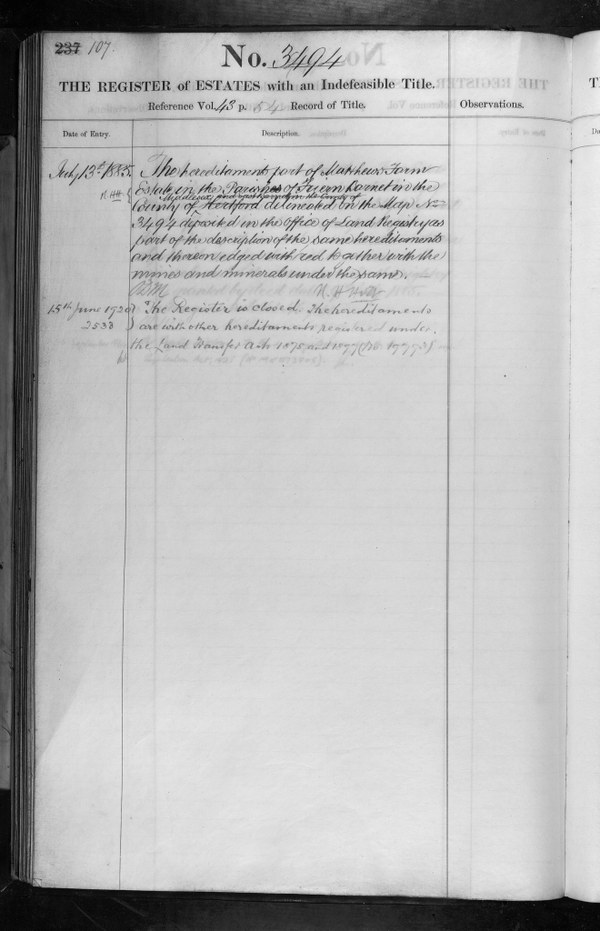 237 107.
No. 3494
THE REGISTER of ESTATES with an Indefeasible Title.
Reference Vol. 43 p. 54 Record of Title.
Observations.
Date of Entry.
Description.
July 13th 1885.
The hereditaments part of Matthews Farm
Estate in the Parishes of Friern Barnet in the
Middlesex and East Barnet in the County of
County of Hertford delineated in the Map No
3494 deposited in the Office of Land Registry as
part of the description of the same hereditaments
and thereon edged with red together with the
mines and minerals under the same.
15th June 1920
2533
The Register is closed. The hereditaments
are with other hereditaments registered under
the Land Transfer Acts 1875 and 1897